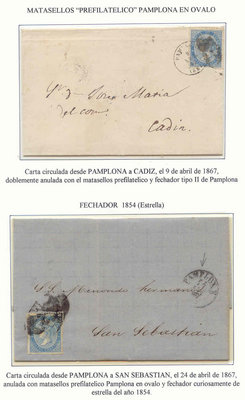 MATASELLOS "PREFILATELICO" PAMPLONA EN OVALO
Maria
Cadiz
Carta circulada desde PAMPLONA a CADIZ, el 9 de abril de 1867,
doblemente anulada con el matasellos prefilatelico y fechador tipo II de Pamplona
FECHADOR 1854 (Estrella)
PAMPLONA
San Sebastian
Carta circulada desde PAMPLONA a SAN SEBASTIAN, el 24 de abril de 1867,
anulada con matasellos prefilatelico Pamplona en ovalo y fechador curiosamente de
estrella del año 1854.